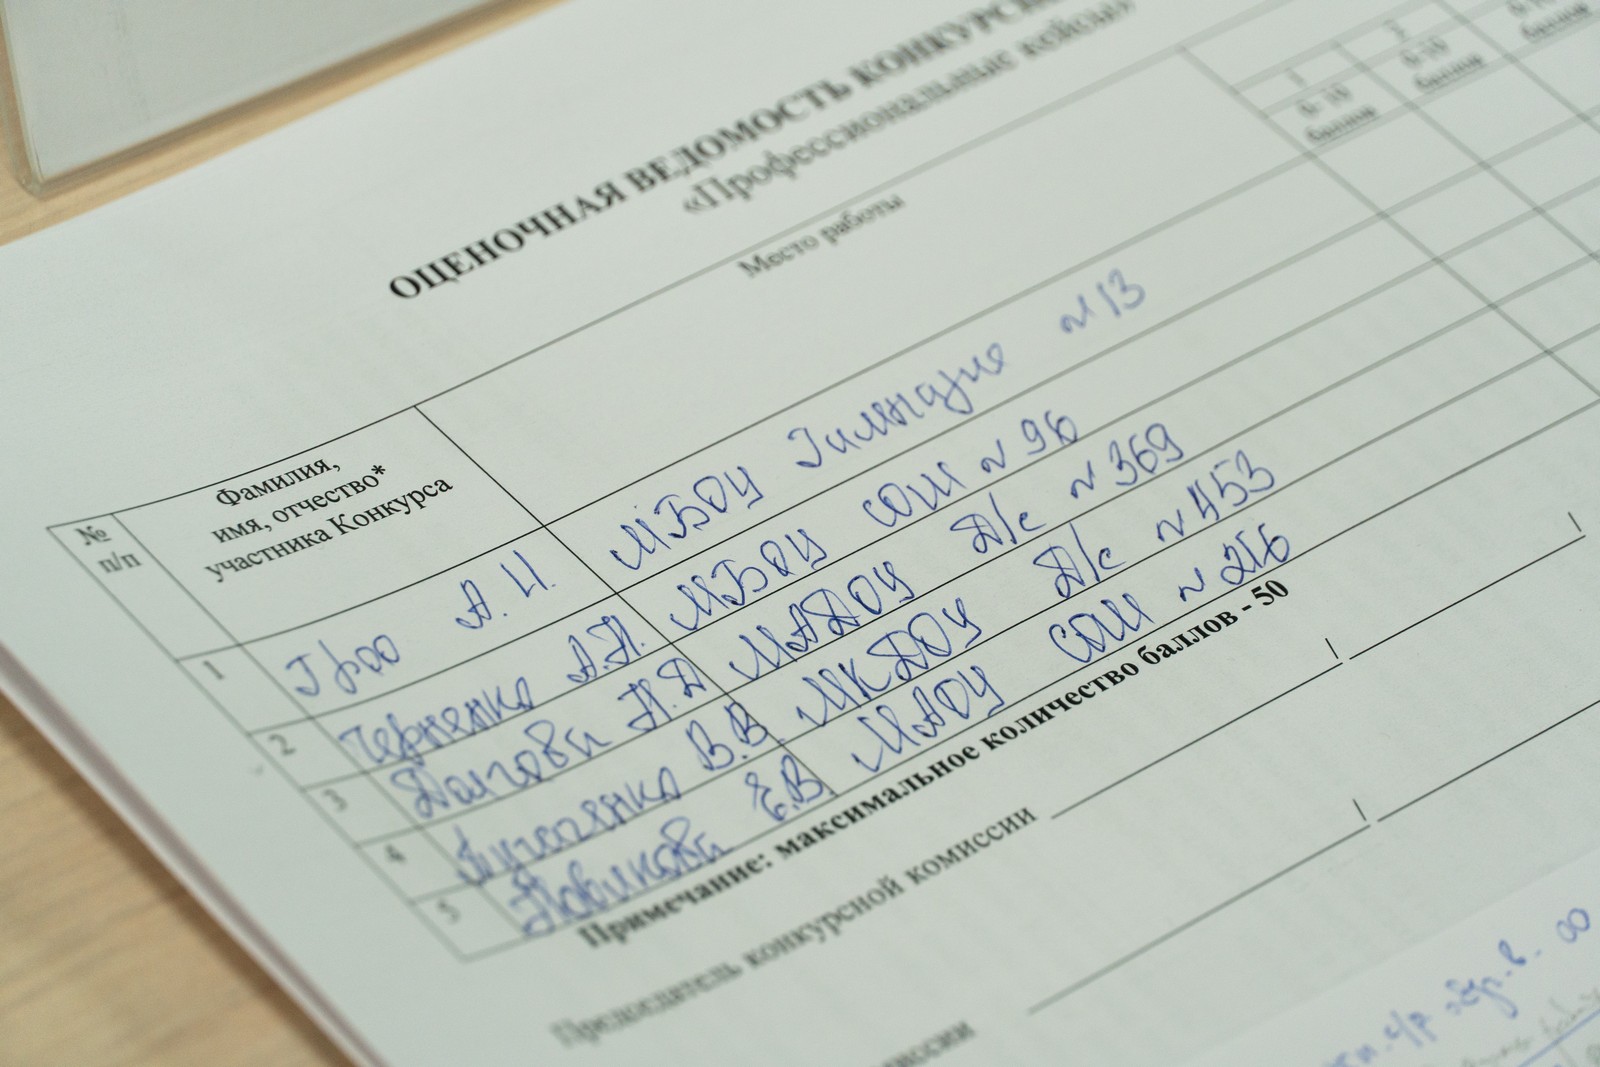 ОЦЕНОЧНАЯ ВЕДОМОСТЬ
«Профессиональные кейсы»
№ п/п
Фамилия,
имя, отчество*
участника Конкурса
Место работы
1
0-10
баллов
2
0-10
баллов
баллов
1 Гроо А.И. МБОУ Гимназия № 13
2 Черненко А.Н. МБОУ СОШ № 96
3 Долгова Н.Д МАДОУ Д/с № 369
4 В.В. МКДОУ Д/с № 453
5 Новикова Е.В. МАОУ СОШ № 216
Примечание: максимальное количество баллов - 50
Председатель конкурсной комиссии / /